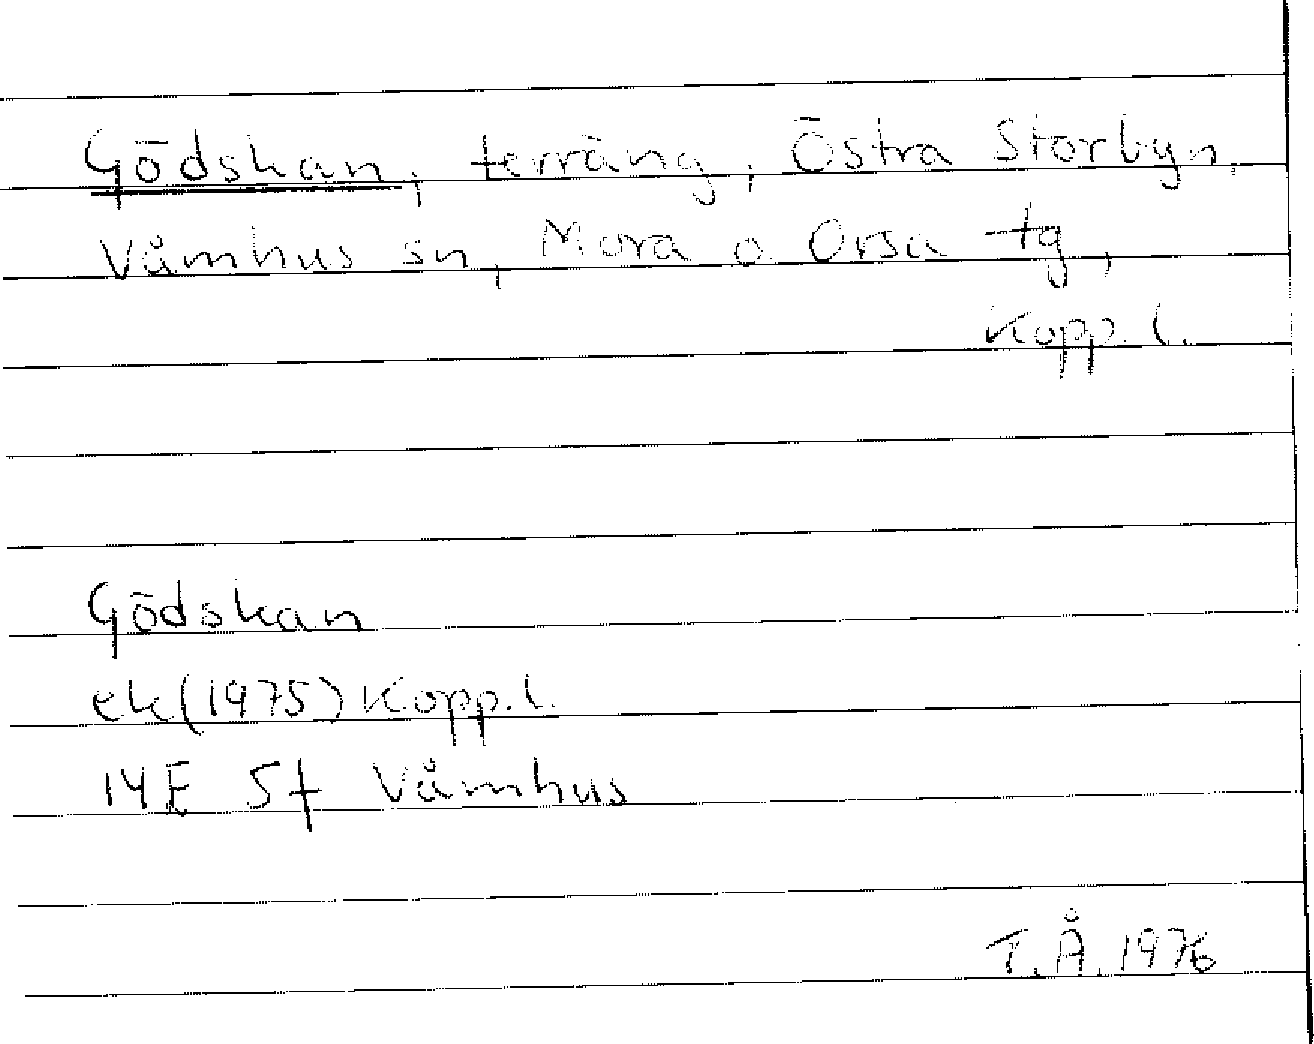 Gödskan, terräng, Östra Storbyn,
Våmhus sn, Mora o. Orsa tg,
Kopp. l.
Gödskan
ek (1975) Kopp. l.
14E 5f Våmhus
T. Å. 1976